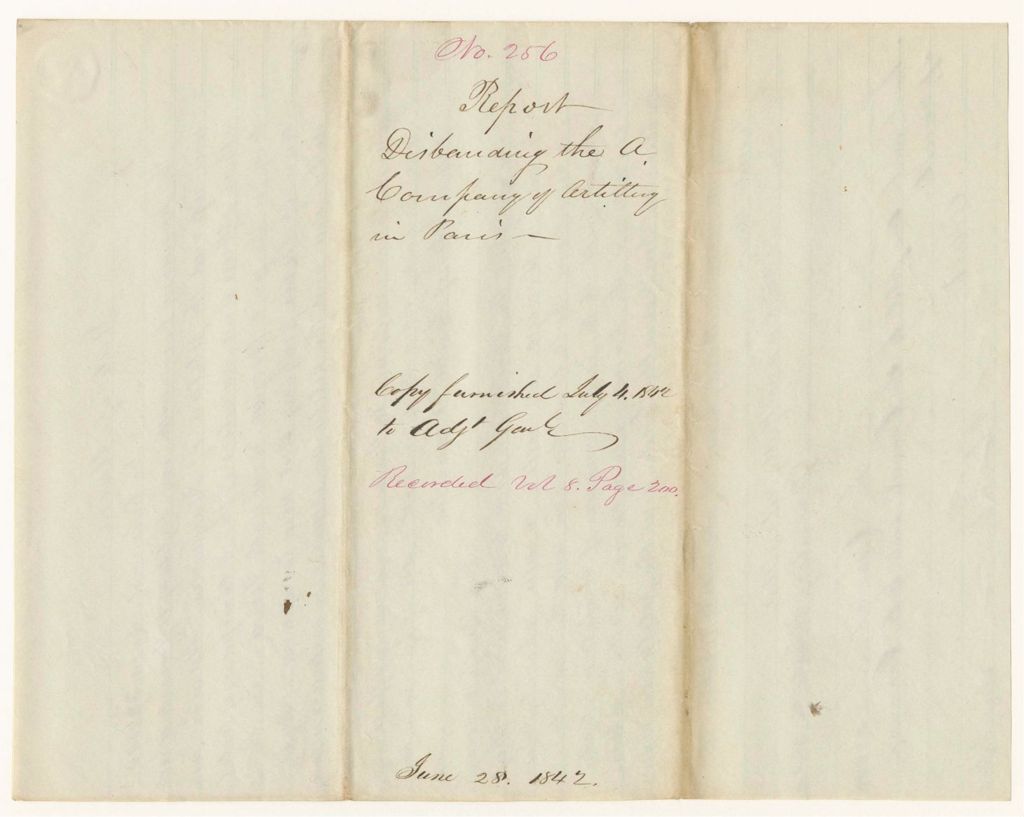 No. 256
Report
Disbanding the A
Company of Artillery
in Paris —
Copy furnished July 4. 1842
to Adjt Genl
Recorded Vol 8. Page 200.
June 28. 1842.